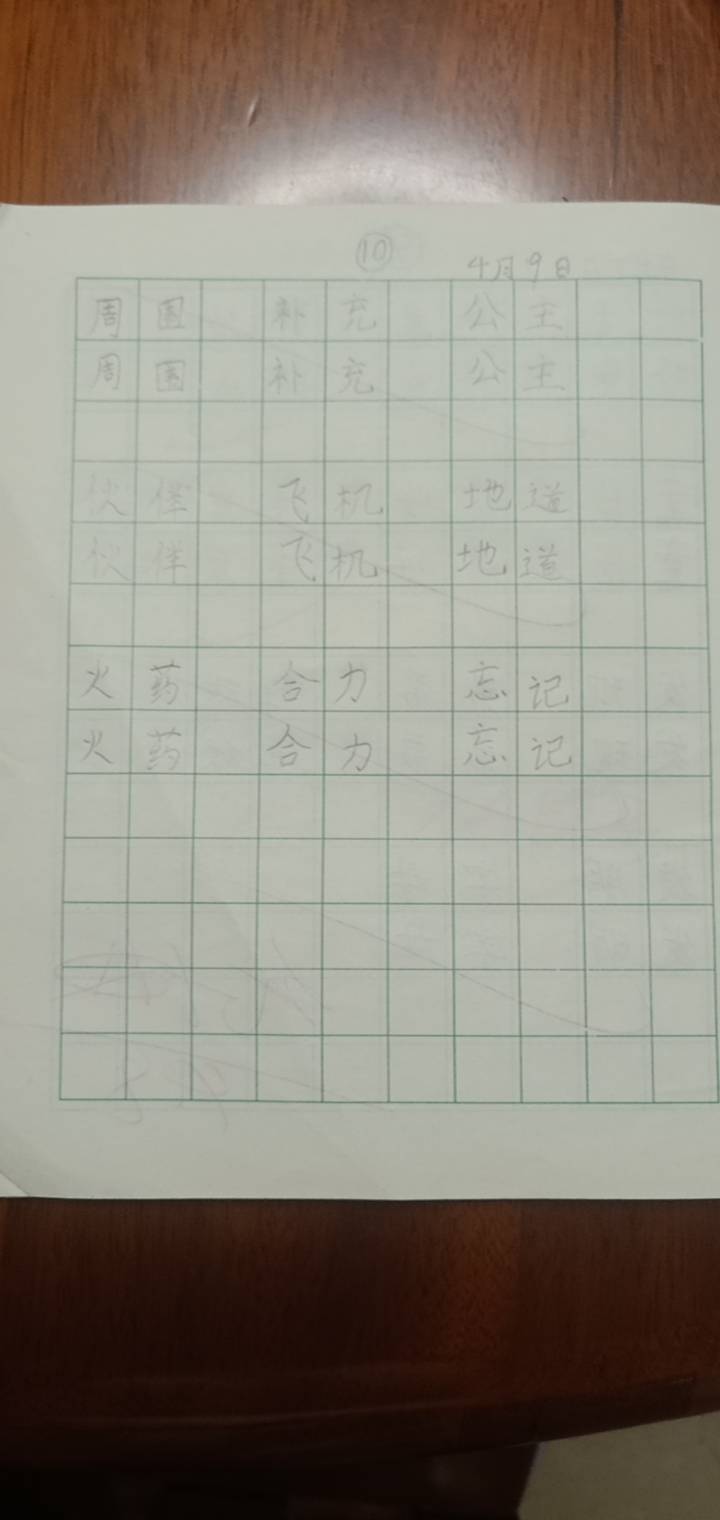 ⑩
4月9日
周围 补充 公主
周围 补充 公主
伙伴 飞机 地道
伙伴 飞机 地道
火药 合力 忘记
火药 合力 忘记